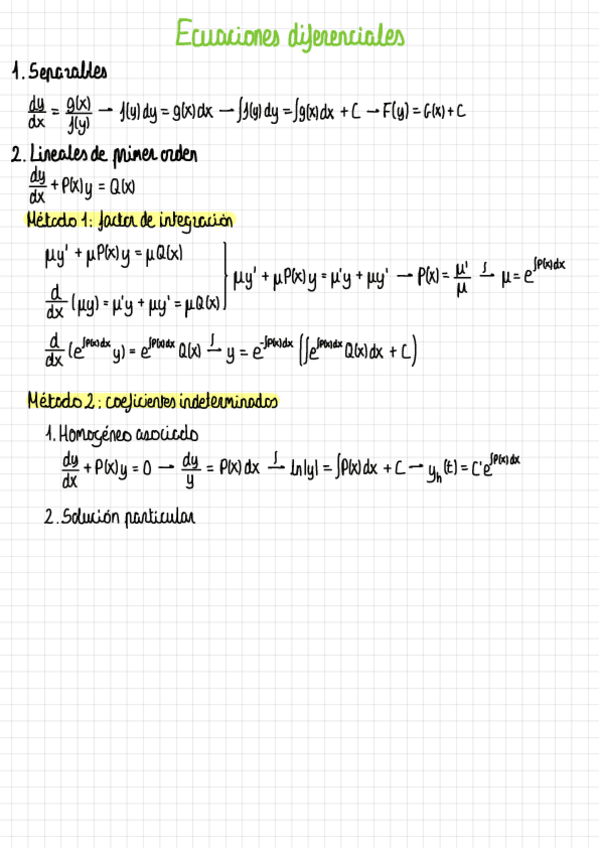 Ecuaciones diferenciales
1. Separables
dy/dx = g(x)/f(y) → f(y) dy = g(x) dx → ∫f(y) dy = ∫g(x) dx + C → F(y) = G(x) + C
2. Lineales de primer orden
dy/dx + P(x) y = Q(x)
Método 1: factor de integración
μy' + μP(x) y = μQ(x)
d/dx (μy) = μ'y + μy' = μQ(x) } μy' + μP(x) y = μ'y + μy' → P(x) = μ'/μ →∫ μ = e^∫P(x)dx
d/dx (e^∫P(x)dx y) = e^∫P(x)dx Q(x) →∫ y = e^-∫P(x)dx (∫e^∫P(x)dx Q(x) dx + C)
Método 2: coeficientes indeterminados
1. Homogéneo asociado
dy/dx + P(x) y = 0 → dy/y = P(x) dx →∫ Ln|y| = ∫P(x) dx + C → y_h (t) = C' e^∫P(x)dx
2. Solución particular